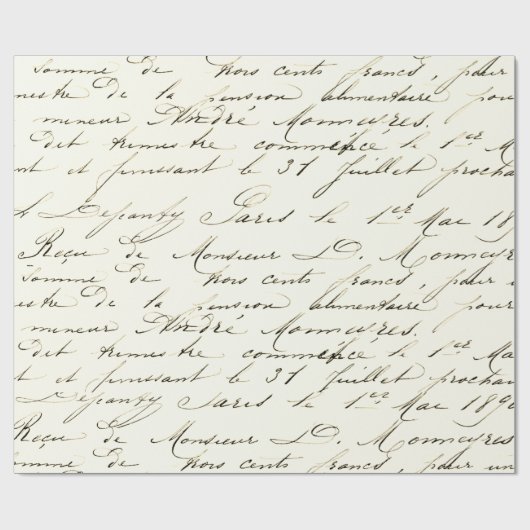 somme de trois cents francs, pour
mestre de la pension alimentaire pou
mineur André Monnayres.
dit trimestre commencé le 1er M
nt et finissant le 31 Juillet procha
Paris le 1er Mai 18
Reçu de Monsieur D. Monnayre
somme de trois cents francs, pour u
estre de la pension alimentaire pour
mineur André Monnayres.
Dit trimestre commencé le 1er Ma
t et finissant le 31 Juillet prochai
Paris le 1er Mai 189
Reçu de Monsieur D. Monnayres
omme de trois cents francs, pour un